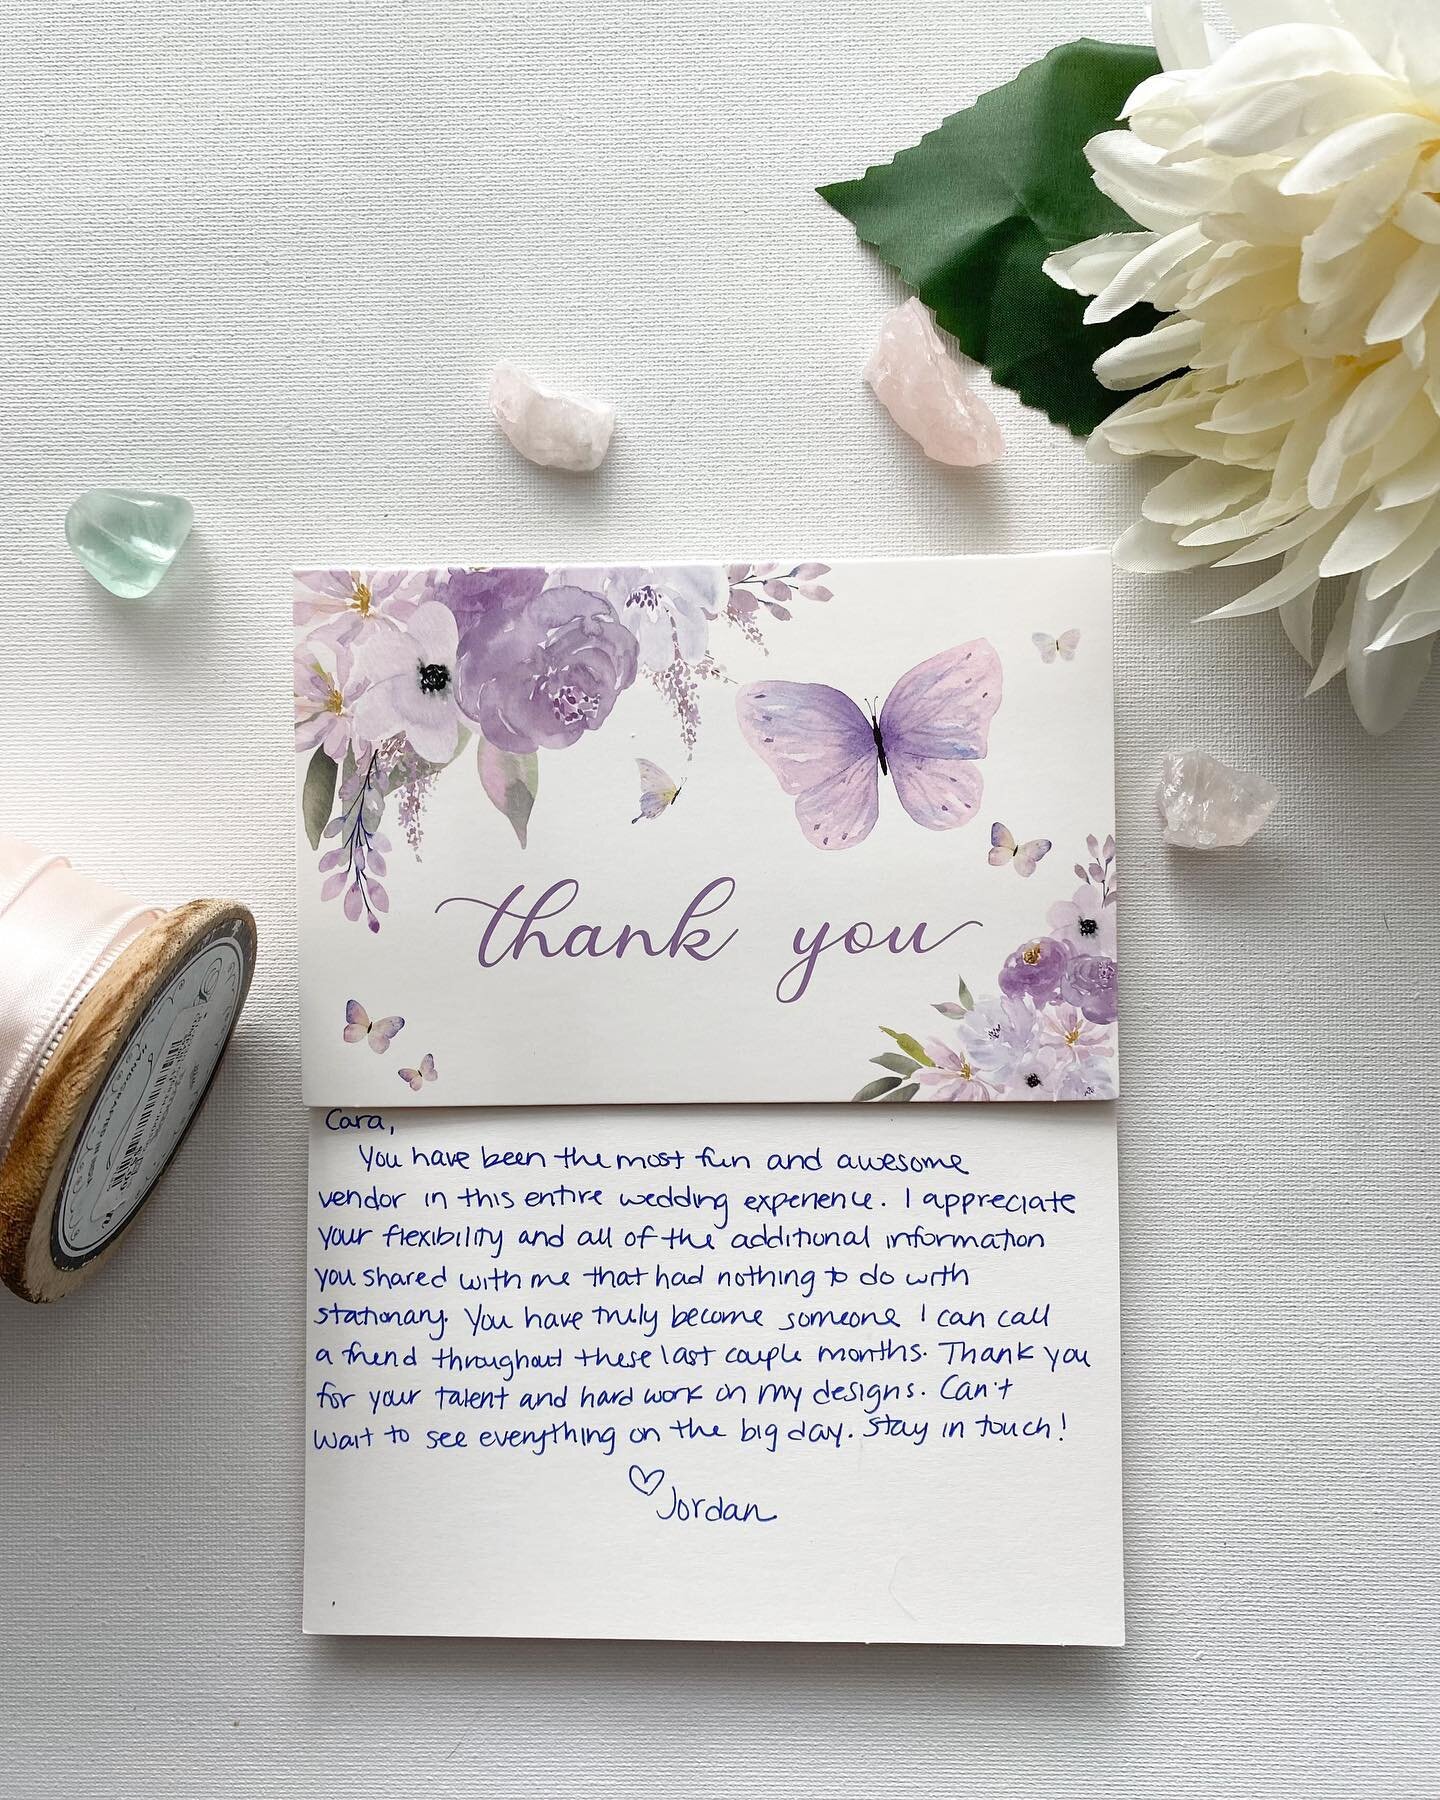 thank you
Cara,
You have been the most fun and awesome
vendor in this entire wedding experience. I appreciate
your flexibility and all of the additional information
you shared with me that had nothing to do with
stationary. You have truly become someone I can call
a friend throughout these last couple months. Thank you
for your talent and hard work on my designs. Can't
wait to see everything on the big day. Stay in touch!
♡
Jordan